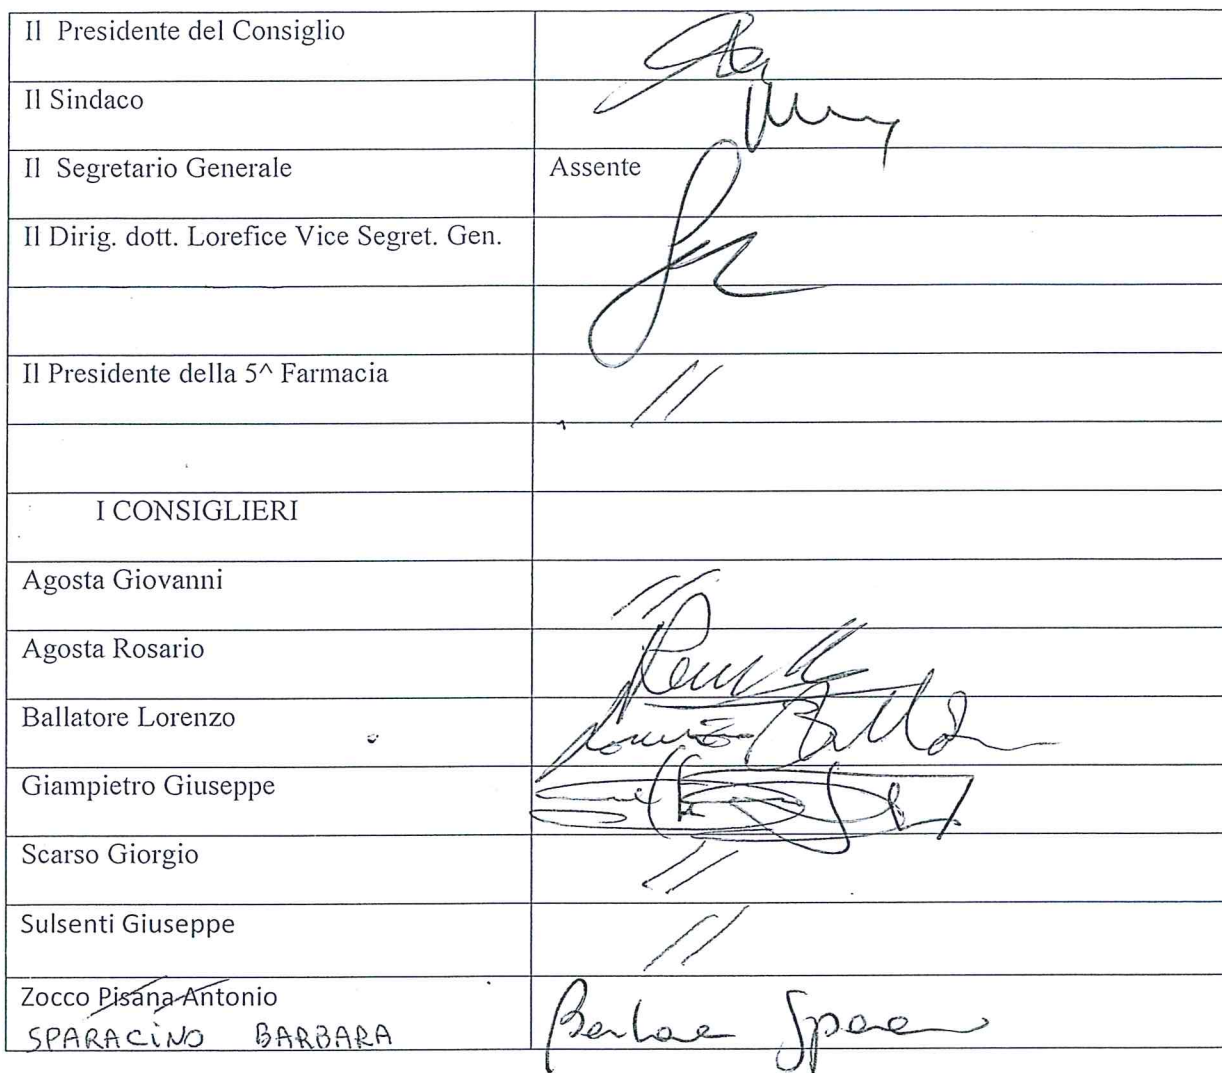 Il Presidente del Consiglio
Il Sindaco
Il Segretario Generale Assente
Il Dirig. dott. Lorefice Vice Segret. Gen.
Il Presidente della 5^ Farmacia //
I CONSIGLIERI
Agosta Giovanni //
Agosta Rosario
Ballatore Lorenzo
Giampietro Giuseppe
Scarso Giorgio //
Sulsenti Giuseppe //
Zocco Pisana Antonio
SPARACINO BARBARA